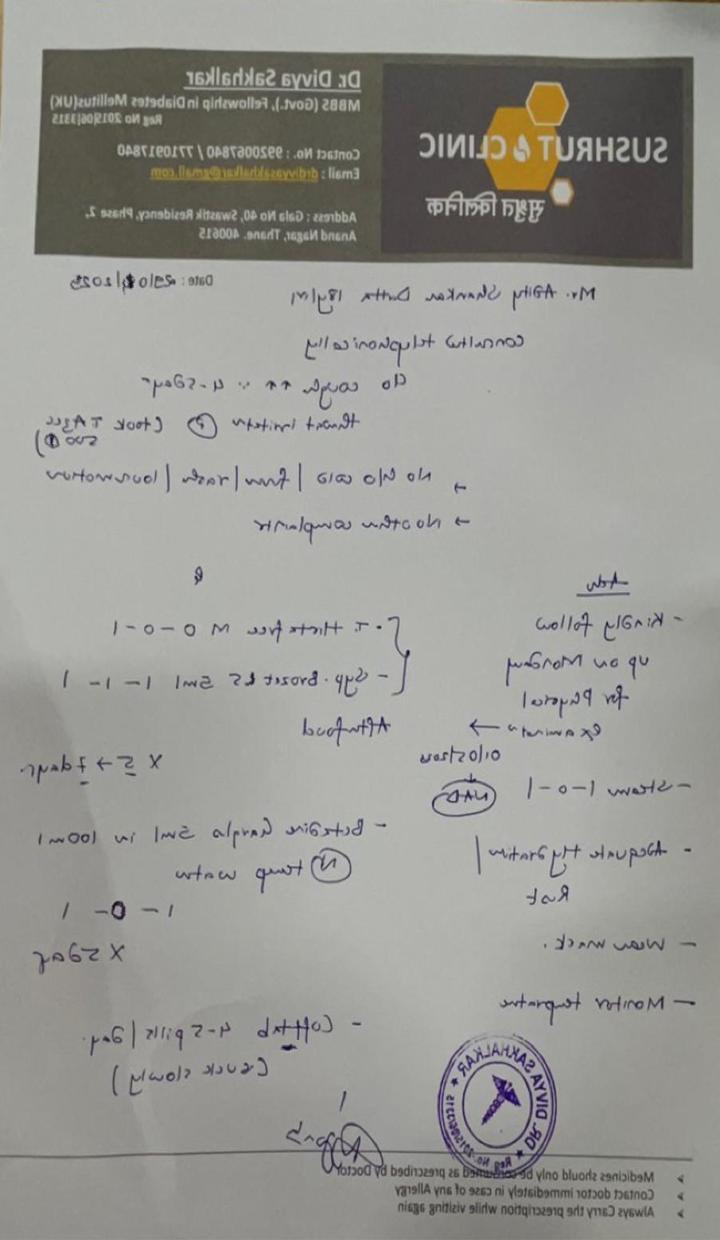 SUSHRUT CLINIC
सुश्रुत क्लिनिक
Dr. Divya Sakhalkar
MBBS (Govt.), Fellowship in Diabetes Mellitus(UK)
Reg No 2019|06|3315
Contact No. : 9920067840 / 7710917840
Email : drdivyasakhalkar@gmail.com
Address : Gala No 40, Swastik Residency, Phase 2,
Anand Nagar, Thane. 400615
Date :
Mr. Shankar Dutta 18y/M
consulted telephonically
c/o cough ↑↑ 4-5days
throat irritation (took T Azee
500
→ No h/o cold / / rash / loosemotion
→ No other complaints
Adv
- Kindly follow
up on Monday
for Physical
examination →
- Steam 1-0-1
NAD
- Adequate Hydration /
Rest
- Wear mask.
- Monitor temperature
- T. free M 0-0-1
- Syp. LS 5ml 1-1-1
After food
X 5 → 7 days.
- Betadine Gargle 5ml in 100ml
temp water
1-0-1
X 5day
- 4-5 pills / day.
(suck slowly)
DR. DIVYA SAKHALKAR
Medicines should only be consumed as prescribed by Doctor
Contact doctor immediately in case of any Allergy
Always Carry the prescription while visiting again